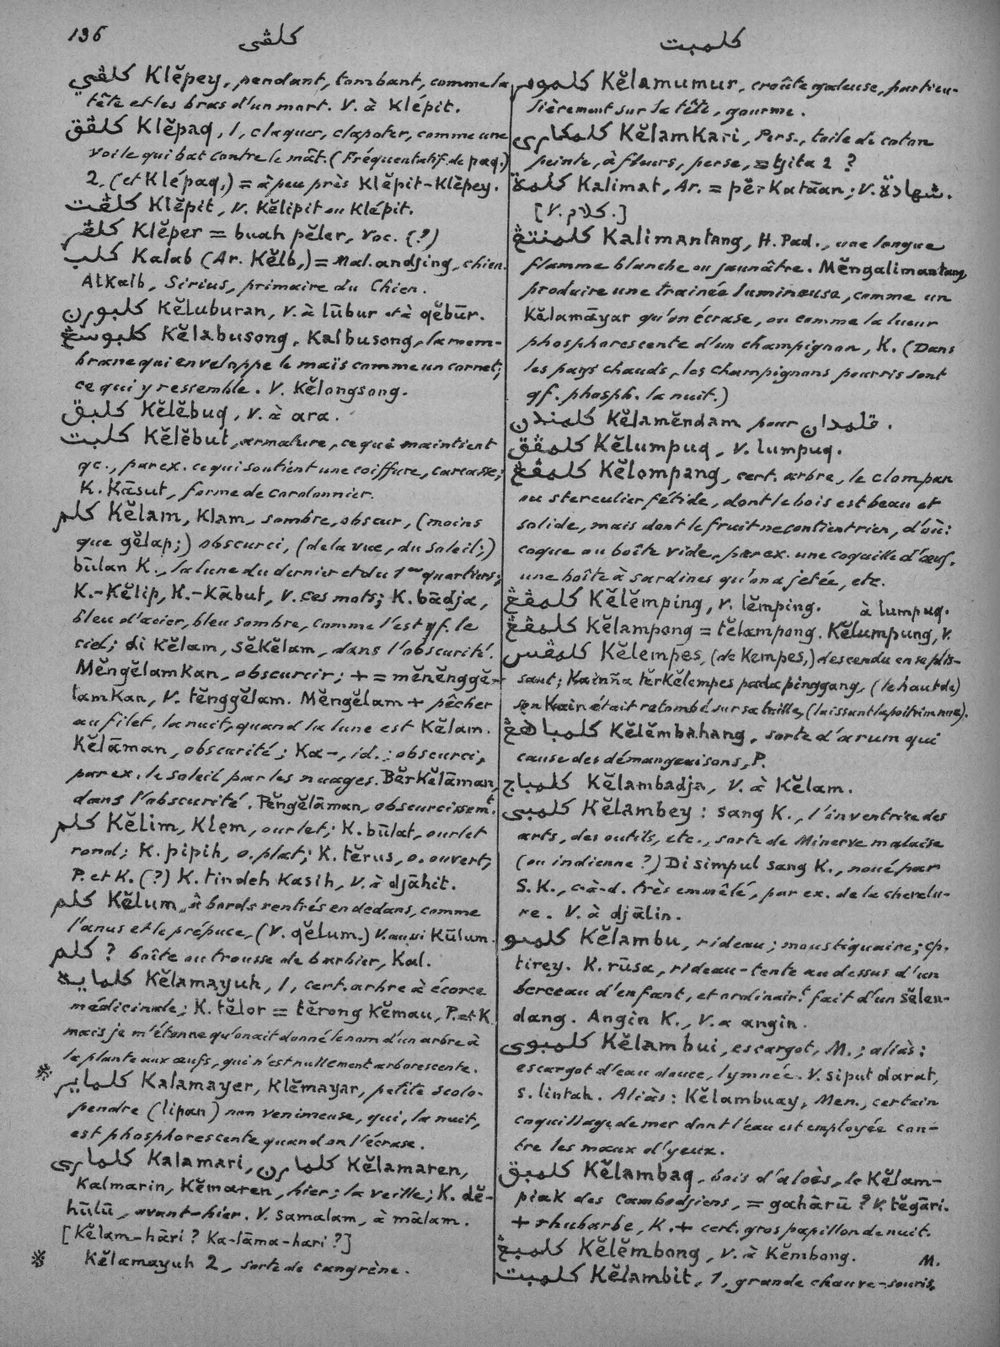 136
كلڤى
كلمبت
كلڤي Klĕpey, pendant, tombant, comme la
tête et les bras d'un mort. V. à Klépit.
كلڤق Klĕpaq, 1, claquer, clapoter, comme une
voile qui bat contre le mât. (Fréquentatif de paq.)
2, (et Klépaq,) = à peu près Klĕpit-Klĕpey.
كلڤت Klĕpit, V. Kĕlipit ou Klépit.
كلڤر Klĕper = buah pĕler, voc. (?)
كلب Kalab (Ar. Kĕlb,) = Mal. andjing, chien.
Alkalb, Sirius, primaire du Chien.
كلبورن Kĕluburan, V. à lūbur et à qĕbūr.
كلبوسڠ Kĕlabusong, Kalbusong, la mem-
brane qui enveloppe le maïs comme un cornet;
ce qui y ressemble. V. Kĕlongsong.
كلبق Kĕlĕbuq, V. à ara.
كلبت Kĕlĕbut, armature, ce qui maintient
qc., par ex. ce qui soutient une coiffure, carcasse;
K. Kāsut, forme de cordonnier.
كلم Kĕlam, Klam, sombre, obscur, (moins
que gĕlap;) obscurci, (de la vue, du soleil;)
būlan K., la lune du dernier et du 1er quartiers;
K.-Kĕlip, K.-Kābut, V. ces mots; K. bādja,
bleu d'acier, bleu sombre, comme l'est qf. le
ciel; di Kĕlam, sĕkĕlam, dans l'obscurité.
Mĕngĕlamkan, obscurcir; + = mĕnĕnggĕ-
lamkan, V. tĕnggĕlam. Mĕngĕlam + pêcher
au filet, la nuit, quand la lune est Kĕlam.
Kĕlāman, obscurité; Ka-, id.; obscurci,
par ex. le soleil par les nuages. Bĕrkĕlāman,
dans l'obscurité. Pĕngĕlāman, obscurcissemt.
كلم Kĕlim, Klem, ourlet; K. būlat, ourlet
rond; K. pipih, o. plat; K. tĕrus, o. ouvert;
P. et K. (?) K. tindeh Kasih, V. à djāhit.
كلم Kĕlum, à bords rentrés en dedans, comme
l'anus et le prépuce, (V. qĕlum.) V. aussi Kūlum.
كلم ? boîte ou trousse de barbier, Kal.
كلمايه Kĕlamayuh, 1, cert. arbre à écorce
médicinale; K. tĕlor = tĕrong Kĕmau, P. et K.
mais je m'étonne qu'on ait donné le nom d'un arbre à
la plante aux œufs, qui n'est nullement arborescente.
※ كلماير Kalamayer, Klĕmayar, petite scolo-
pendre (lipan) non venimeuse, qui, la nuit,
est phosphorescente quand on l'écrase.
كلمارى Kalamari, كلمارن Kĕlamaren,
Kalmarin, Kĕmaren, hier; la veille; K. dĕ-
hūlū, avant-hier. V. samalam, à mālam.
[Kĕlam-hāri ? Ka-lāma-hari ?]
※ Kĕlamayuh 2, sorte de cangrène.
كلمومر Kĕlamumur, croûte galeuse, particu-
lièrement sur la tête, gourme.
كلمكارى Kĕlamkari, Pers., toile de coton
peinte, à fleurs, perse, = tjita 2 ?
كلمة Kalimat, Ar. = pĕrkatāan; V. شهادة.
[V. كلام.]
كلمنتڠ Kalimantang, H. Pad., une longue
flamme blanche ou jaunâtre. Mĕngalimantang,
produire une traînée lumineuse, comme un
Kĕlamāyar qu'on écrase, ou comme la lueur
phosphorescente d'un champignon, K. (Dans
les pays chauds, les champignons pourris sont
qf. phosph. la nuit.)
كلمندن Kĕlamĕndam pour قلمدان.
كلمڤق Kĕlumpuq, V. lumpuq.
كلمڤڠ Kĕlompang, cert. arbre, le clompan
ou sterculier fétide, dont le bois est beau et
solide, mais dont le fruit ne contient rien, d'où:
coque ou boîte vide, par ex. une coquille d'œuf,
une boîte à sardines qu'on a jetée, etc.
كلمڤڠ Kĕlĕmping, V. lĕmping. à lumpuq.
كلمڤڠ Kĕlampong = tĕlampong. Kĕlumpung, V.
كلمڤس Kĕlempĕs, (de Kempes,) descendu en se plis-
sant; Kainña tĕrkĕlempes pada pinggang, (le haut de)
son Kain était retombé sur sa taille, (laissant la poitrine nue).
كلمباهڠ Kĕlĕmbahang, sorte d'arum qui
cause des démangeaisons, P.
كلمباج Kĕlambadja, V. à Kĕlam.
كلمبى Kĕlambey : sang K., l'inventrice des
arts, des outils, etc., sorte de Minerve malaise
(ou indienne ?) Di simpul sang K., noué par
S. K., c-à-d. très emmêlé, par ex. de la chevelu-
re. V. à djālin.
كلمبو Kĕlambu, rideau; moustiquaire; cp.
tirey. K. rūsa, rideau-tente au dessus d'un
berceau d'enfant, et ordinairt fait d'un sĕlen-
dang. Angin K., V. à angin.
كلمبوى Kĕlambui, escargot, M.; aliàs:
escargot d'eau douce, lymnée. V. siput darat,
s. lintah. Aliàs: Kĕlambuay, Men., certain
coquillage de mer dont l'eau est employée con-
tre les maux d'yeux.
كلمبق Kĕlambaq, bois d'aloès, le Kĕlam-
piak des Cambodgiens, = gahārū ? V. tĕgāri.
+ rhubarbe, K. + cert. gros papillon de nuit.
كلمبڠ Kĕlĕmbong, V. à Kĕmbong. M.
كلمبت Kĕlambit, 1, grande chauve-souris,